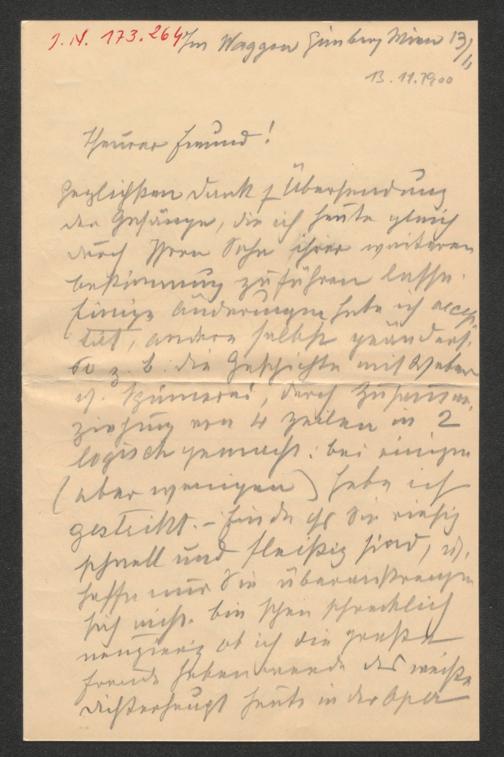 I. N. 173.264 Im Waggon Wien 13/11
13.11.1900
Theurer Freund!
Herzlichsten Dank f Übersendung
der Gesänge, die ich heute gleich
durch Ihren Sohn ihrer weiteren
bestimmung zuführen lasse.
Einige Änderungen habe ich accep
tirt, andere selbst geändert.
so z. b. die Geschichte mit Weber
u. durch Zusammen
ziehung von 4 Zeilen in 2
logisch gemacht. bei einigen
(aber wenigen) habe ich
gestrikt. – Finde daß Sie riesig
schnell und fleißig sind, u.
hoffe nur Sie überanstrengen
sich nicht. bin schon schrecklich
neugierig ob ich die große
Freude haben werde das
Dichterhaupt heute in der Oper